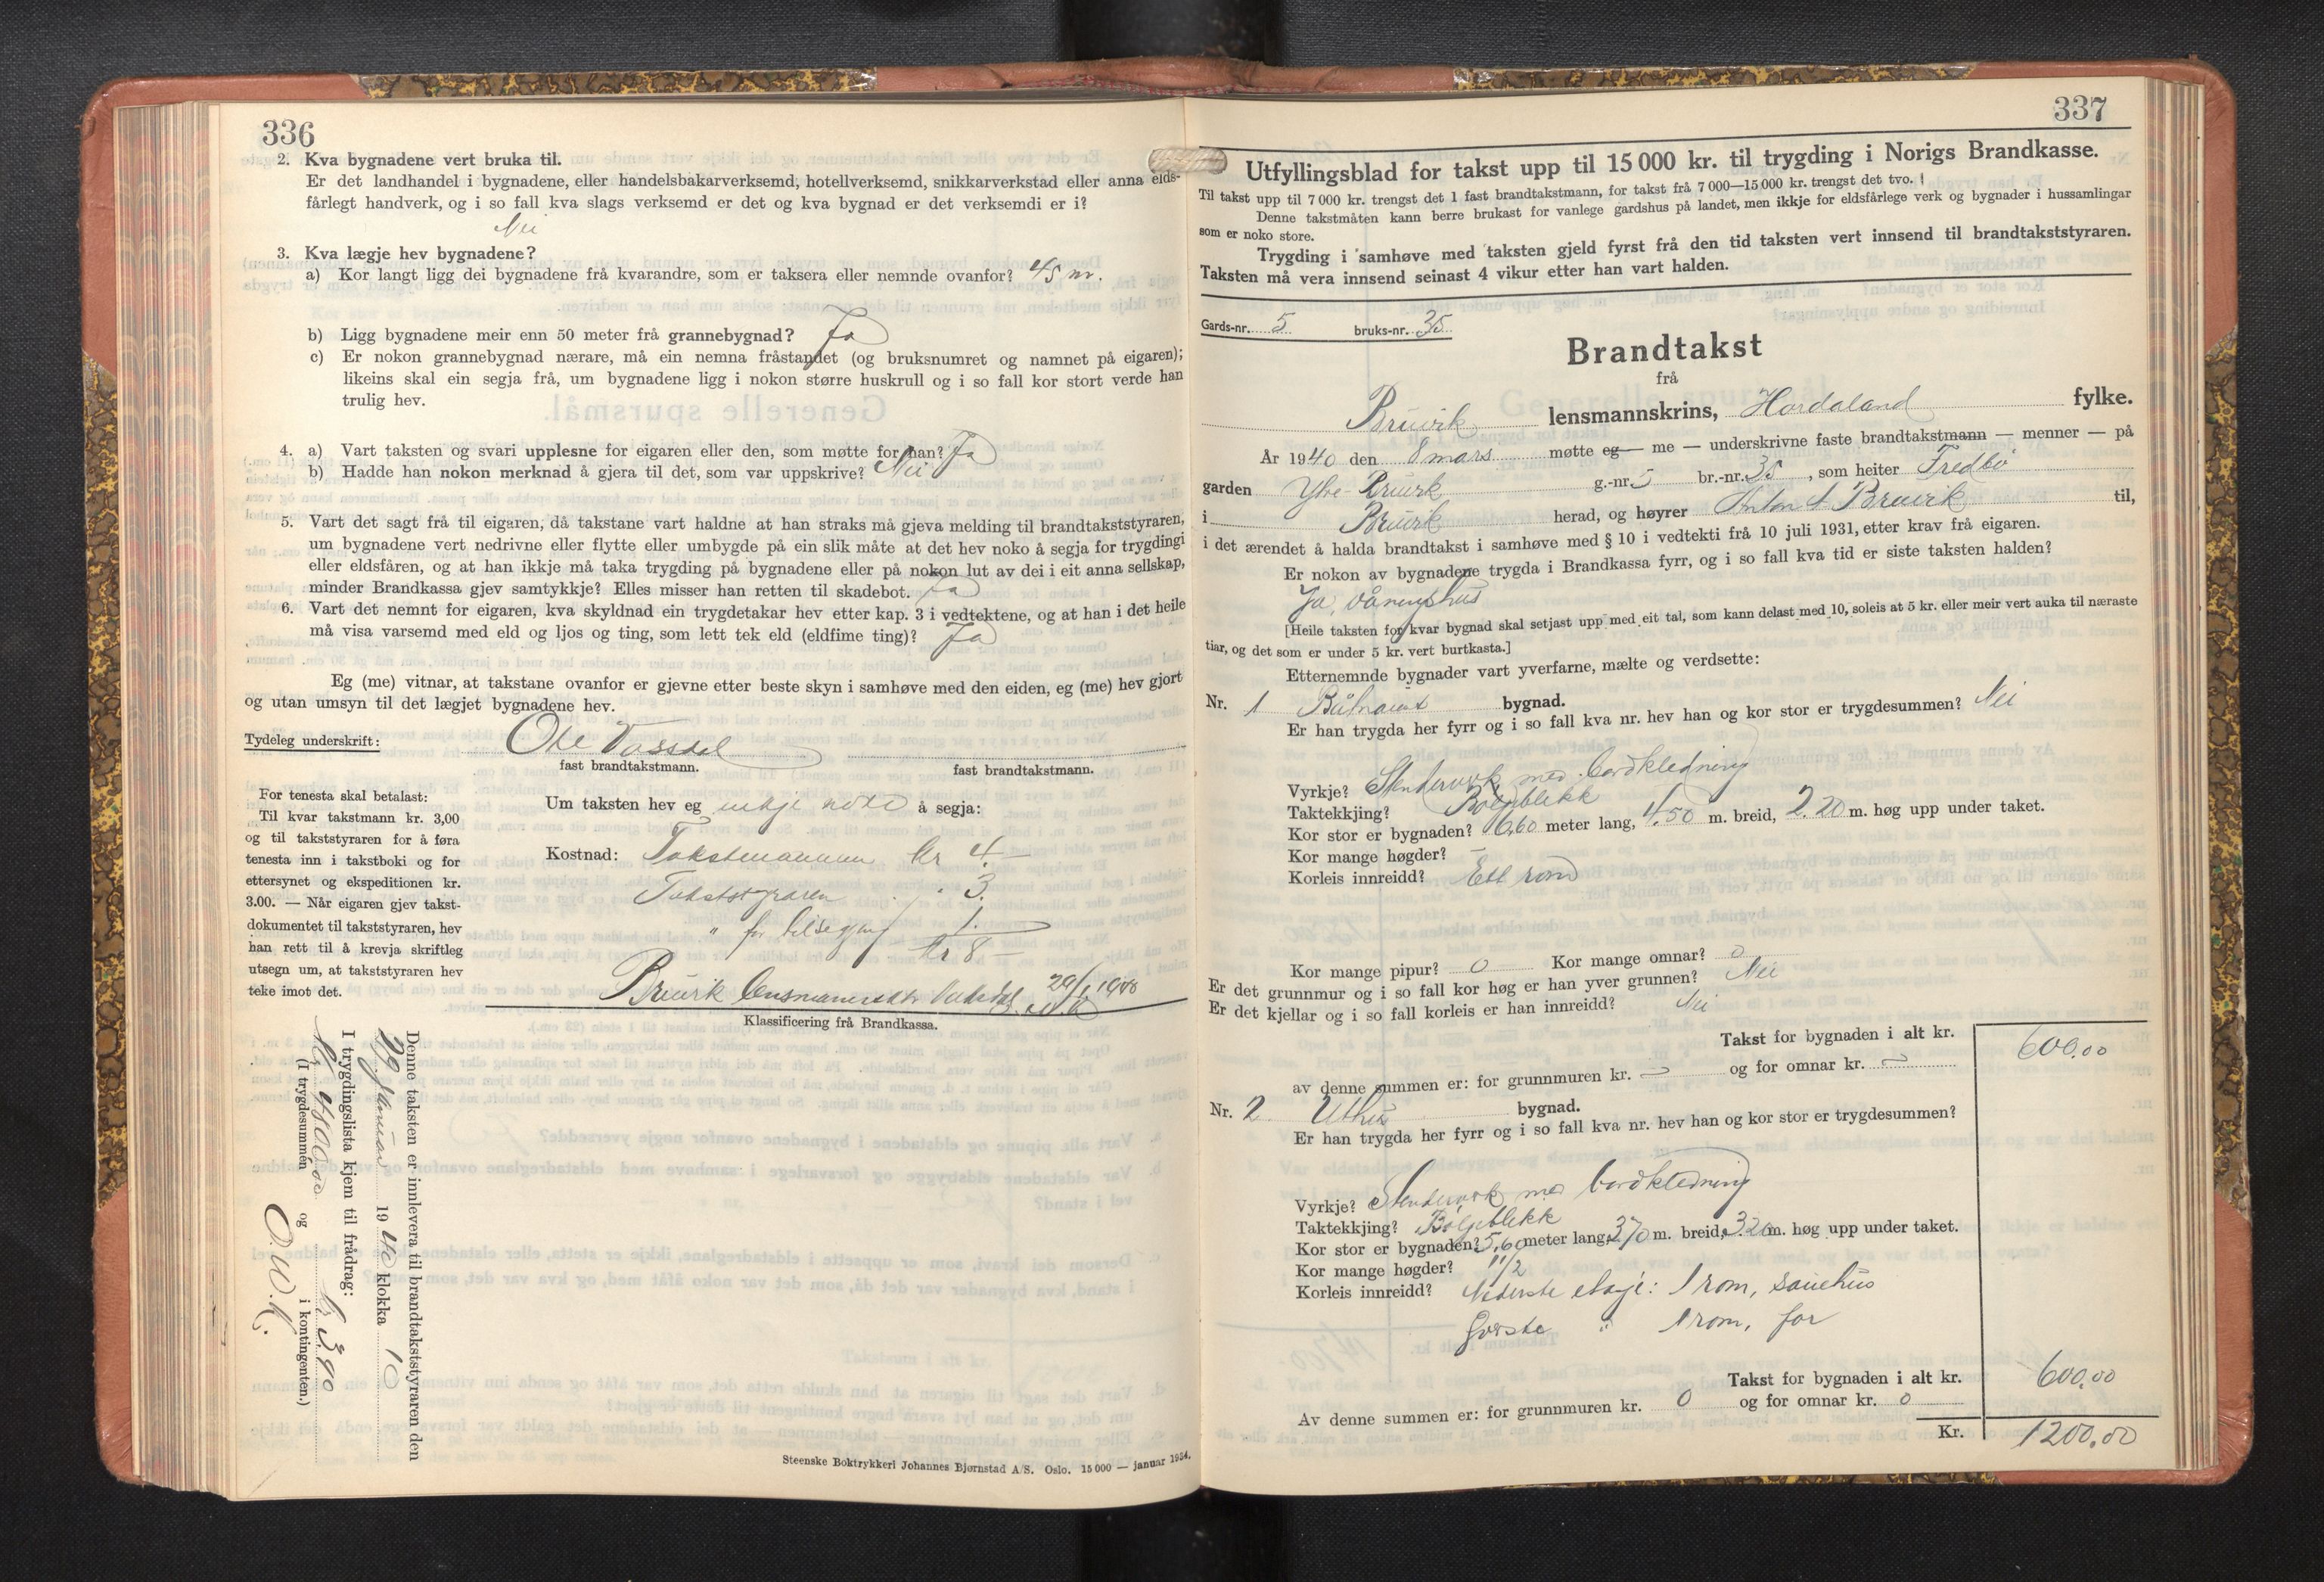 336
2. Kva bygnadene vert bruka til.
Er det landhandel i bygnadene, eller handelsbakarverksemd, hotellverksemd, snikkarverkstad eller anna elds-
fårlegt handverk, og i so fall kva slags verksemd er det og kva bygnad er det verksemdi er i?
Nei
3. Kva lægje hev bygnadene?
a) Kor langt ligg dei bygnadene frå kvarandre, som er taksera eller nemnde ovanfor? 45 m.
b) Ligg bygnadene meir enn 50 meter frå grannebygnad? Ja
c) Er nokon grannebygnad nærare, må ein nemna fråstandet (og bruksnumret og namnet på eigaren);
likeins skal ein segja frå, um bygnadene ligg i nokon større huskrull og i so fall kor stort verde han
trulig hev.
4. a) Vart taksten og svari upplesne for eigaren eller den, som møtte for han? Ja
b) Hadde han nokon merknad å gjera til det, som var uppskrive? Nei
5. Vart det sagt frå til eigaren, då takstane vart haldne at han straks må gjeva melding til brandtakststyraren,
um bygnadene vert nedrivne eller flytte eller umbygde på ein slik måte at det hev noko å segja for trygdingi
eller eldsfåren, og at han ikkje må taka trygding på bygnadene eller på nokon lut av dei i eit anna sellskap,
minder Brandkassa gjev samtykkje? Elles misser han retten til skadebot. Ja
6. Vart det nemnt for eigaren, kva skyldnad ein trygdetakar hev etter kap. 3 i vedtektene, og at han i det heile
må visa varsemd med eld og ljos og ting, som lett tek eld (eldfime ting)? Ja
Eg (me) vitnar, at takstane ovanfor er gjevne etter beste skyn i samhøve med den eiden, eg (me) hev gjort
og utan umsyn til det lægjet bygnadene hev.
Tydeleg underskrift: Ole Vassdal
fast brandtakstmann. fast brandtakstmann.
For tenesta skal betalast:
Til kvar takstmann kr. 3,00
og til takststyraren for å føra
tenesta inn i takstboki og for
ettersynet og ekspeditionen kr.
3.00. — Når eigaren gjev takst-
dokumentet til takststyraren, hev
han rett til å krevja skriftleg
utsegn um, at takststyraren hev
teke imot det.
Um taksten hev eg inkje å segja:
Kostnad: Takstmannen kr 4.—
Takststyraren " 3.
" for 1.
Kr 8 —
Bruvik lensmannskontor
Klassificering frå Brandkassa.
Denne taksten er innlevera til brandtakststyraren den
29 januar 1940 klokka 10
I trygdingslista kjem til frådrag:
(I trygdesummen og i kontingenten.)
Steenske Boktrykkeri Johannes Bjørnstad A/S. Oslo. 15 000 — januar 1934.
337
Utfyllingsblad for takst upp til 15 000 kr. til trygding i Norigs Brandkasse.
Til takst upp til 7 000 kr. trengst det 1 fast brandtakstmann, for takst frå 7 000—15 000 kr. trengst det tvo.
Denne takstmåten kann berre brukast for vanlege gardshus på landet, men ikkje for eldsfårlege verk og bygnader i hussamlingar
som er noko store.
Trygding i samhøve med taksten gjeld fyrst frå den tid taksten vert innsend til brandtakststyraren.
Taksten må vera innsend seinast 4 vikur etter han vart halden.
Gards-nr. 5 bruks-nr. 35
Brandtakst
frå
Bruvik lensmannskrins, Hordaland fylke.
År 1940 den 8 mars møtte eg — me — underskrivne faste brandtakstmann — menner — på
garden Ytre-Bruvik g.-nr. 5 br.-nr. 35, som heiter Fredbo
i Bruvik herad, og høyrer Anton A Bruvik til,
i det ærendet å halda brandtakst i samhøve med § 10 i vedtekti frå 10 juli 1931, etter krav frå eigaren.
Er nokon av bygnadene trygda i Brandkassa fyrr, og i so fall kva tid er siste taksten halden?
Ja, våningshus
[Heile taksten for kvar bygnad skal setjast upp med eit tal, som kann delast med 10, soleis at 5 kr. eller meir vert auka til næraste
tiar, og det som er under 5 kr. vert burtkasta.]
Etternemnde bygnader vart yverfarne, mælte og verdsette:
Nr. 1 Båtnaust bygnad.
Er han trygda her fyrr og i so fall kva nr. hev han og kor stor er trygdesummen? Nei
Vyrkje? Stenderverk med bordkledning
Taktekkjing? Bølgeblikk
Kor stor er bygnaden? 6,60 meter lang, 4.50 m. breid, 2.20 m. høg upp under taket.
Kor mange høgder? –
Korleis innreidd? Ett rom
Kor mange pipur? 0 Kor mange omnar? 0
Er det grunnmur og i so fall kor høg er han yver grunnen? Nei
Er det kjellar og i so fall korleis er han innreidd? Nei
Takst for bygnaden i alt kr. 600,00
av denne summen er: for grunnmuren kr. — og for omnar kr. —
Nr. 2 Uthus bygnad.
Er han trygda her fyrr og i so fall kva nr. hev han og kor stor er trygdesummen?
Vyrkje? Stenderverk med bordkledning
Taktekkjing? Bølgeblikk
Kor stor er bygnaden? 5,60 meter lang, 3,70 m. breid, 3.20 m. høg upp under taket.
Kor mange høgder? 1 1/2
Korleis innreidd? Nederste etasje: 1 rom, sauehus
Øverste " 1 rom, for
Takst for bygnaden i alt kr. 600,00
Av denne summen er: for grunnmuren kr. 0 og for omnar kr. 0
Kr. 1200,00